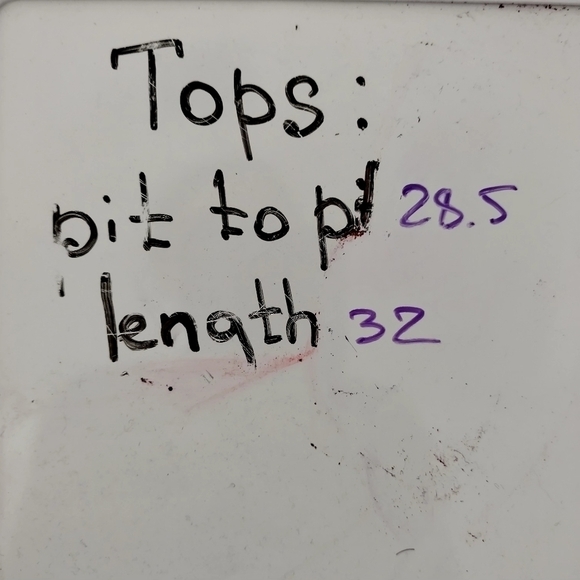 Tops:
pit to pit 28.5
length 32